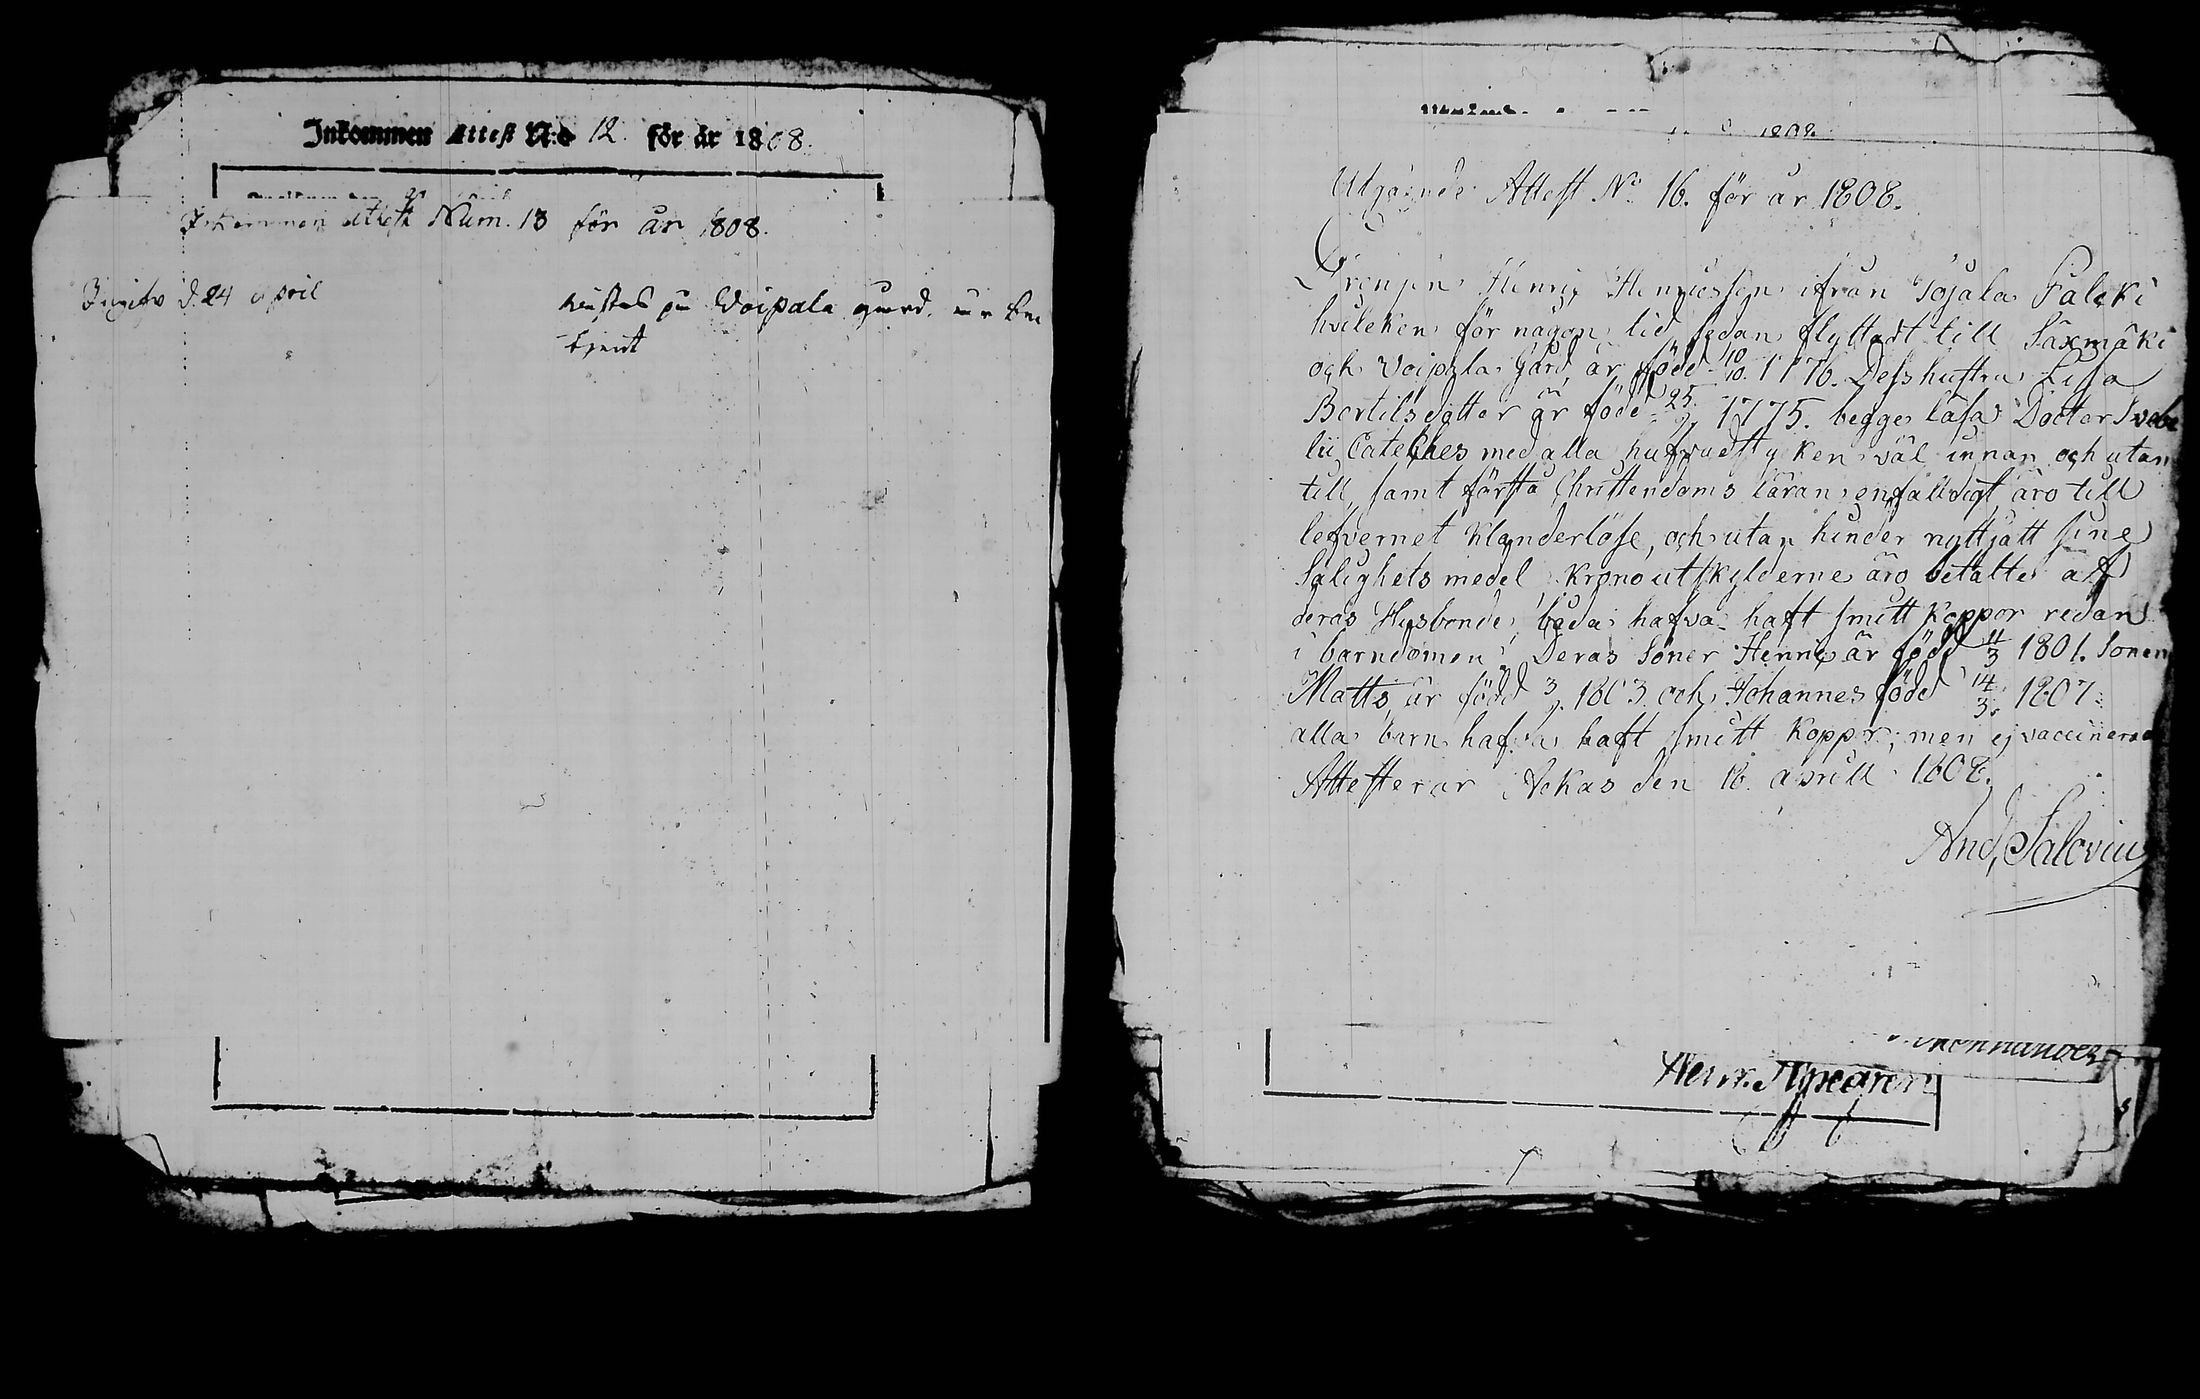 Inkommen Attest N:o 12. för år 1808.
Inkommen attest Num. 13 för år 1808.
Ingifv d. 24 april
vistas på Woipala gård. är be
tjent
1808.
Utgående Attest No. 16. för år 1808.
Drengen Henric Henricsson ifrån Tojala Saleki
hvileken för någon tid sedan flyttadt till Saxmäki
och Voipala Gård är född 10/10. 1776. Dess hustru Lisa
Bertilsdotter är född 25/9 1775. begge läsa Doctor Svebe
lii Cateches med alla hufvudstycken väl innan och utan
till, samt första Christendoms läran enfaldigt äro till
lefvernet klanderlöse, och utan hinder nyttjatt sine
Salighets medel Krono utskylderne äro betalte af
deras Husbonde, båda hafva haft smitt koppor redan
i barndomen. Deras Söner Henric är född 11/3 1801. Sonen
Matts är född 3/9. 1803. och Johannes född 14/3. 1807.
alla barn hafva haft smitt koppor, men ej vaccinerad
Attesterar Ackas den 18. aprill 1808.
And. Salovius
Henr.